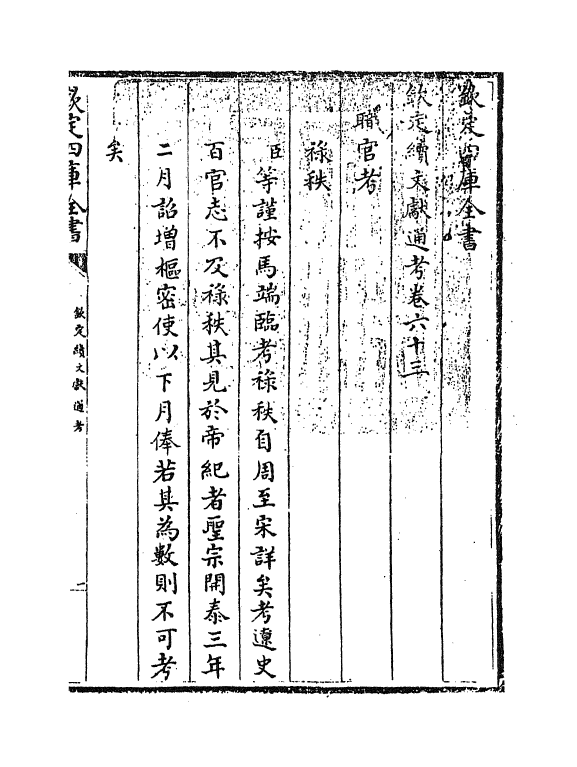 欽定四庫全書
欽定續文獻通考卷六十三
職官考
祿秩
臣等謹按馬端臨考祿秩自周至宋詳矣考遼史
百官志不及祿秩其見於帝紀者聖宗開泰三年
二月詔增樞密使以下月俸若其為數則不可考
矣
欽定四庫全書
欽定續文獻通考